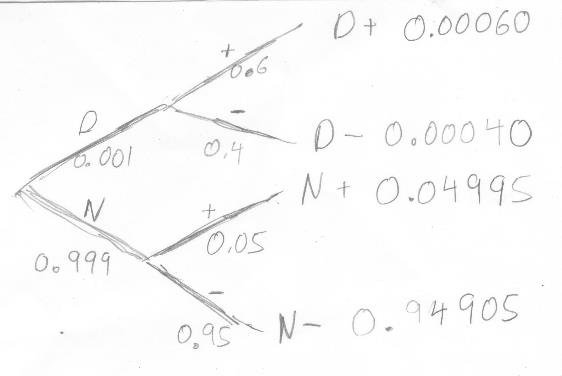 +
0.6
D+ 0.00060
D
0.001
-
0.4
D- 0.00040
N
0.999
+
0.05
N+ 0.04995
-
0.95
N- 0.94905